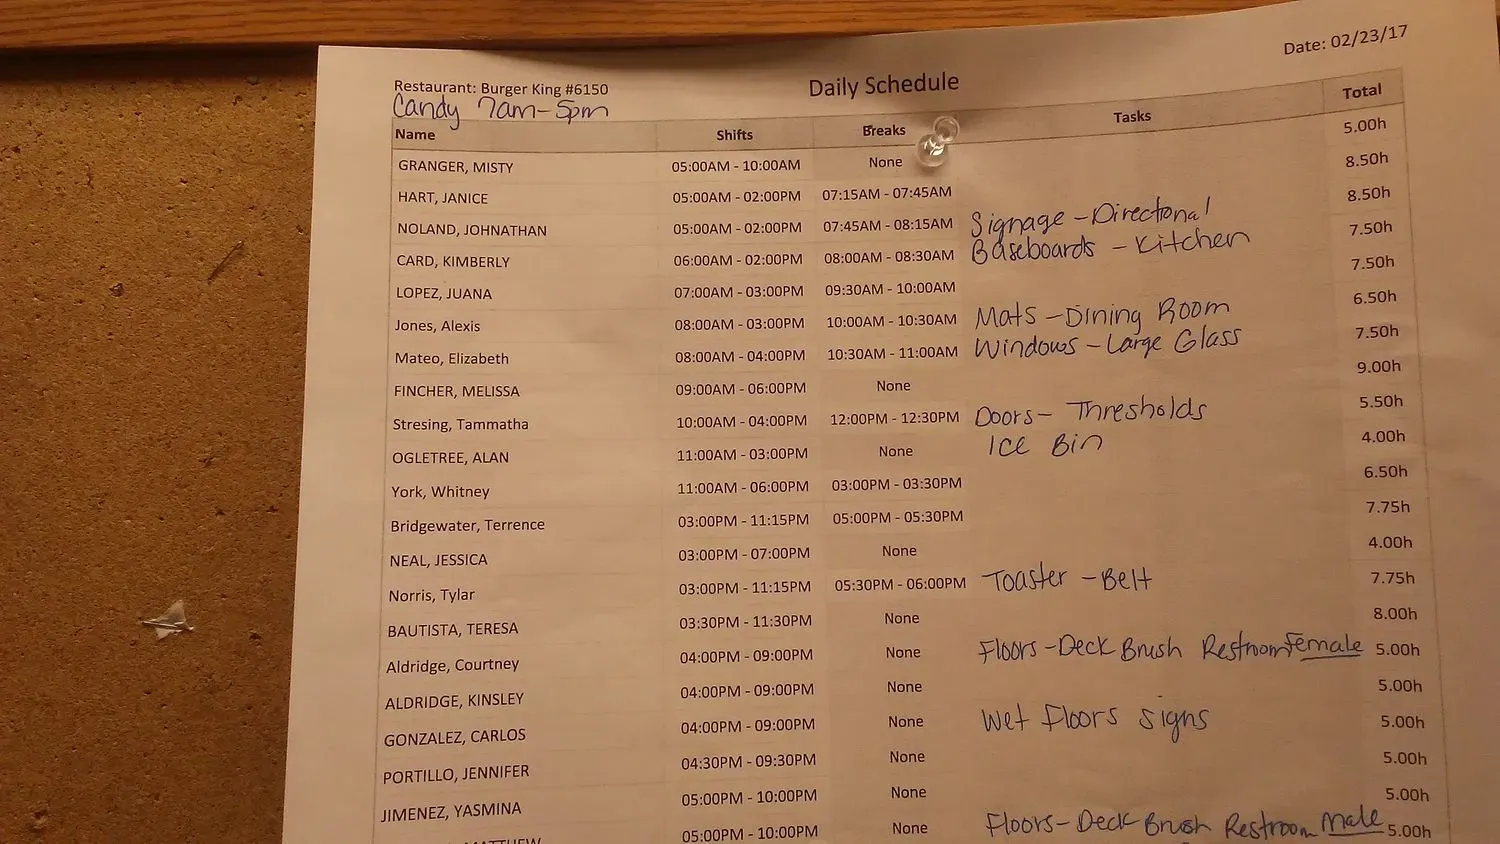 Date: 02/23/17
Restaurant: Burger King #6150 Daily Schedule
Candy 7am-5pm
Name Shifts Breaks Tasks Total
GRANGER, MISTY 05:00AM - 10:00AM None 5.00h
HART, JANICE 05:00AM - 02:00PM 07:15AM - 07:45AM 8.50h
NOLAND, JOHNATHAN 05:00AM - 02:00PM 07:45AM - 08:15AM Signage - Directional 8.50h
CARD, KIMBERLY 06:00AM - 02:00PM 08:00AM - 08:30AM Baseboards - Kitchen 7.50h
LOPEZ, JUANA 07:00AM - 03:00PM 09:30AM - 10:00AM 7.50h
Jones, Alexis 08:00AM - 03:00PM 10:00AM - 10:30AM Mats - Dining Room 6.50h
Mateo, Elizabeth 08:00AM - 04:00PM 10:30AM - 11:00AM Windows - Large Glass 7.50h
FINCHER, MELISSA 09:00AM - 06:00PM None 9.00h
Stresing, Tammatha 10:00AM - 04:00PM 12:00PM - 12:30PM Doors - Thresholds 5.50h
OGLETREE, ALAN 11:00AM - 03:00PM None Ice Bin 4.00h
York, Whitney 11:00AM - 06:00PM 03:00PM - 03:30PM 6.50h
Bridgewater, Terrence 03:00PM - 11:15PM 05:00PM - 05:30PM 7.75h
NEAL, JESSICA 03:00PM - 07:00PM None 4.00h
Norris, Tylar 03:00PM - 11:15PM 05:30PM - 06:00PM Toaster - Belt 7.75h
BAUTISTA, TERESA 03:30PM - 11:30PM None 8.00h
Aldridge, Courtney 04:00PM - 09:00PM None Floors - Deck Brush Restroom Female 5.00h
ALDRIDGE, KINSLEY 04:00PM - 09:00PM None 5.00h
GONZALEZ, CARLOS 04:00PM - 09:00PM None Wet Floors Signs 5.00h
PORTILLO, JENNIFER 04:30PM - 09:30PM None 5.00h
JIMENEZ, YASMINA 05:00PM - 10:00PM None 5.00h
05:00PM - 10:00PM None Floors - Deck Brush Restroom Male 5.00h